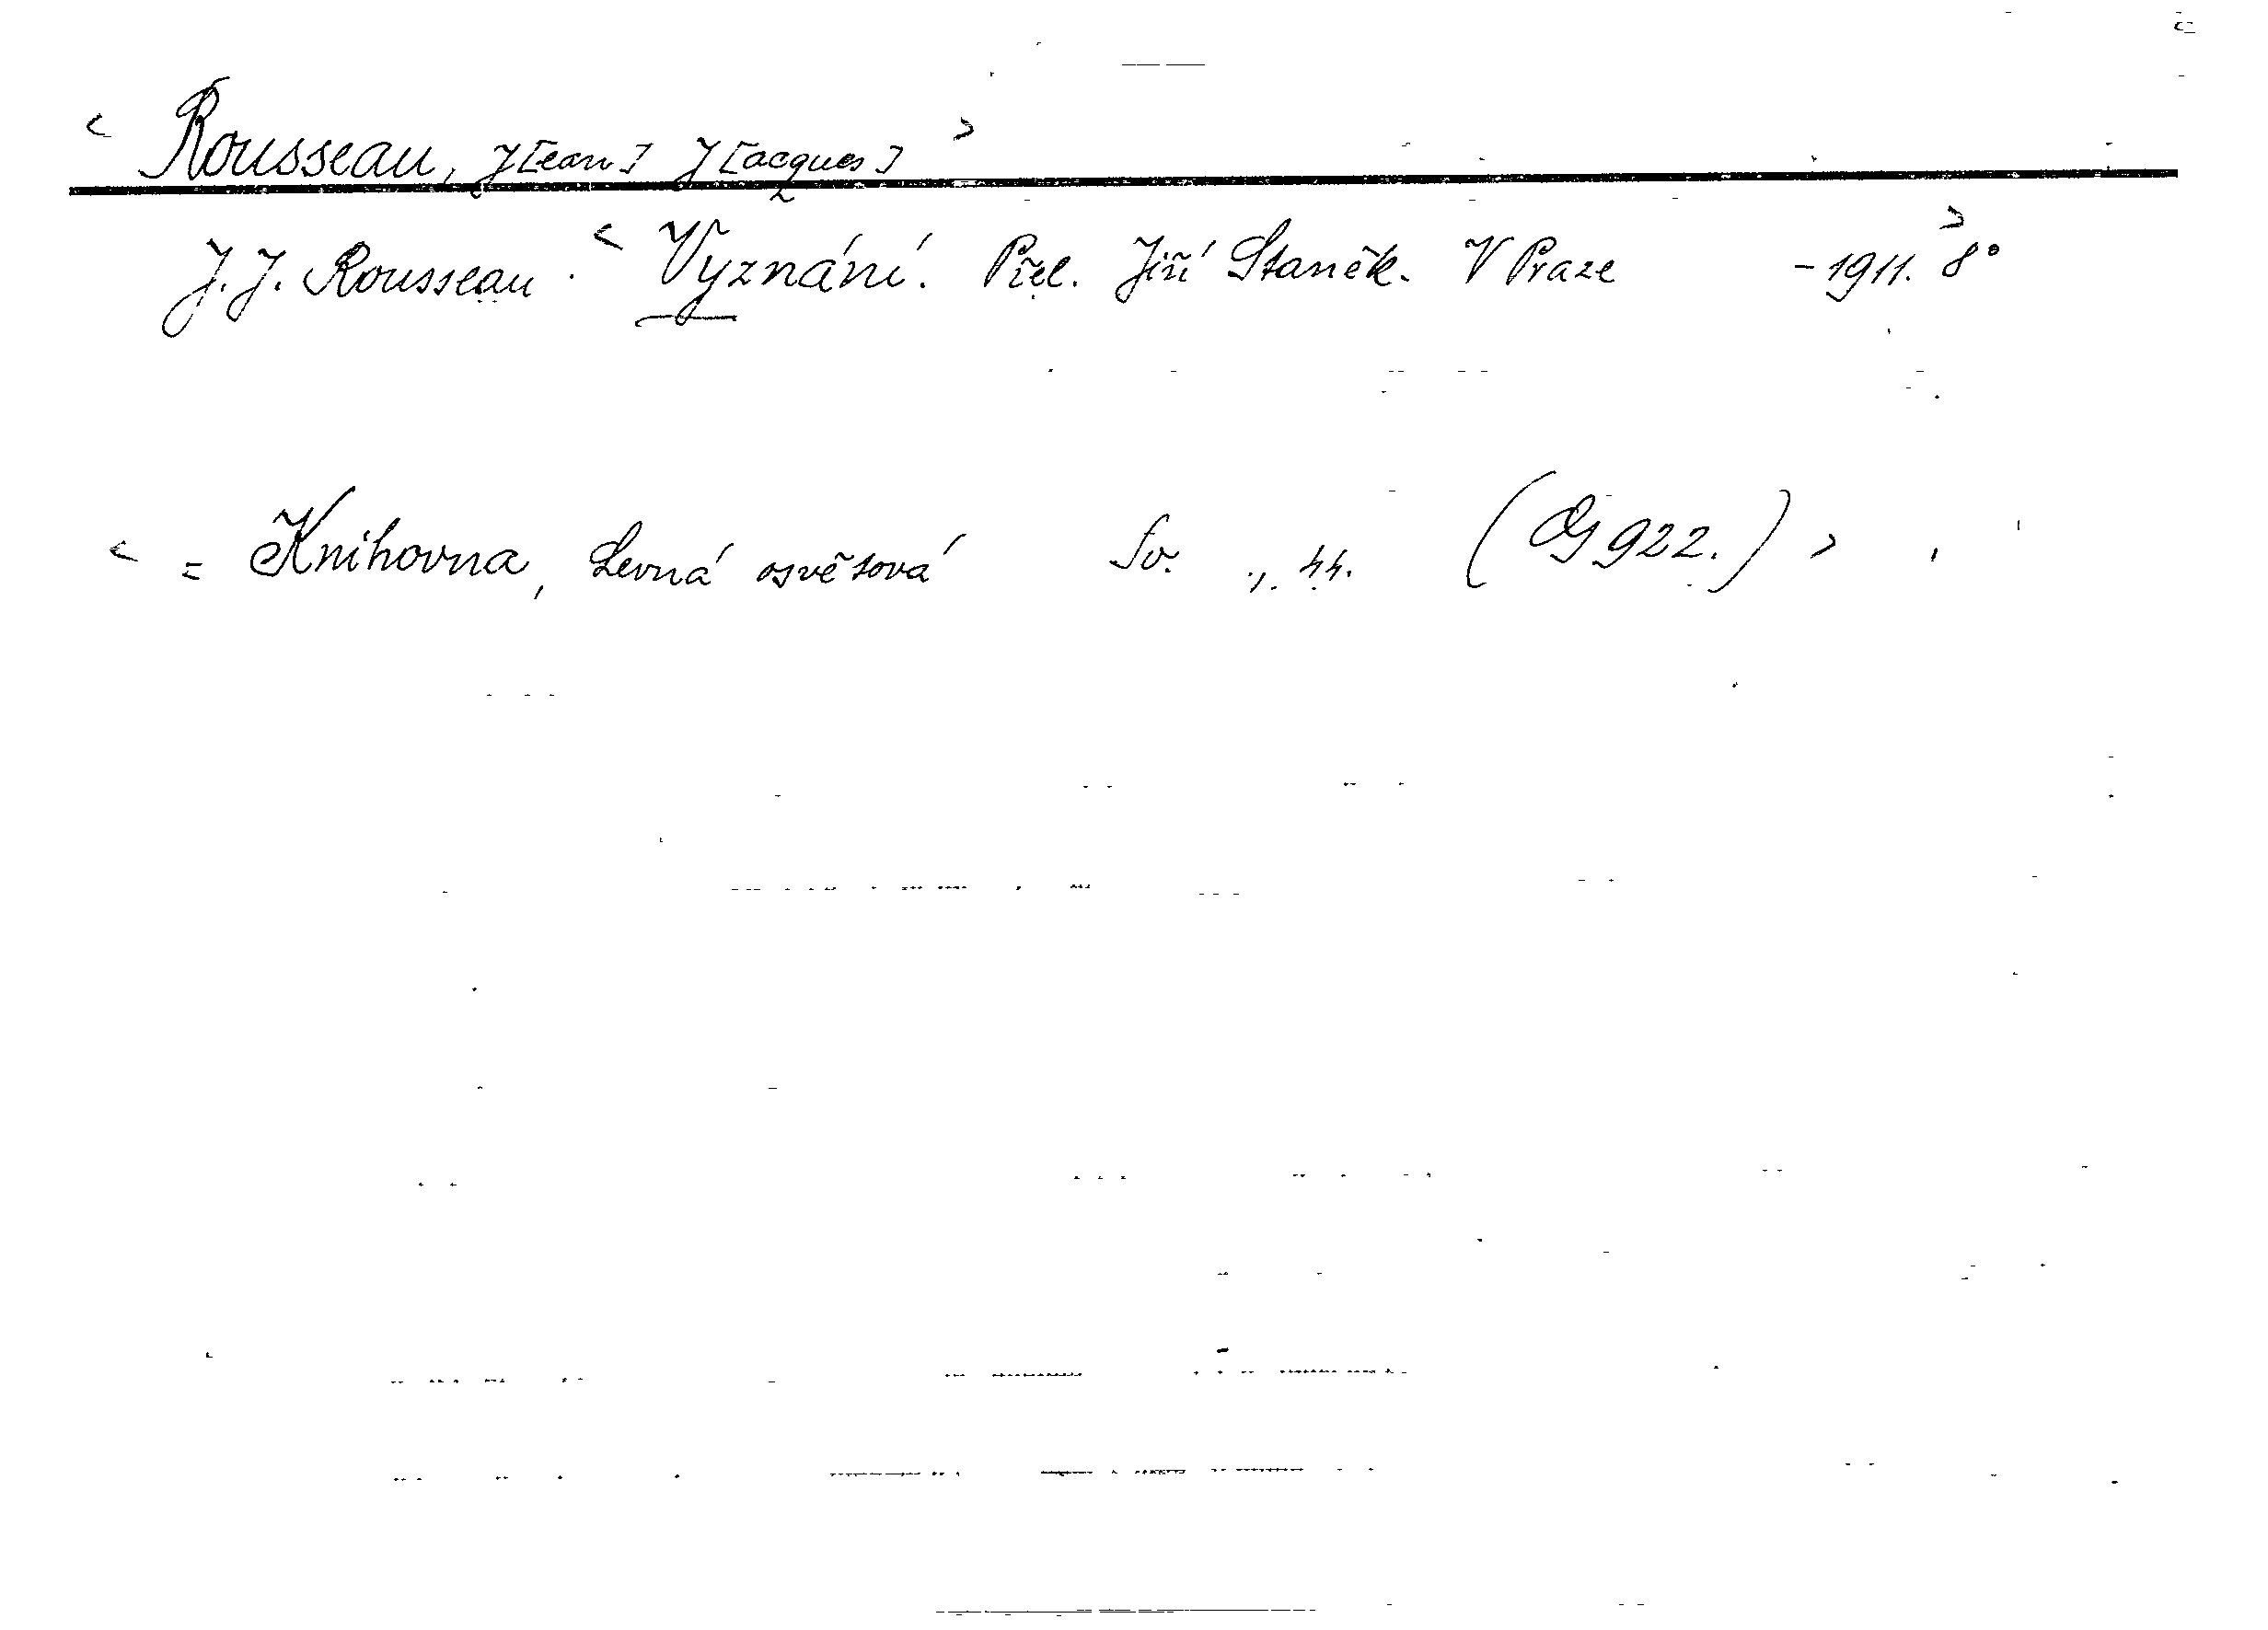 < Rousseau, J[ean] J[acques] >
J. J. Rousseau. < Vyznání. Přel. Jiří Staněk. V Praze - 1911. 8° >
< = Knihovna, Levná osvětová Sv. 44. (G 922.) >